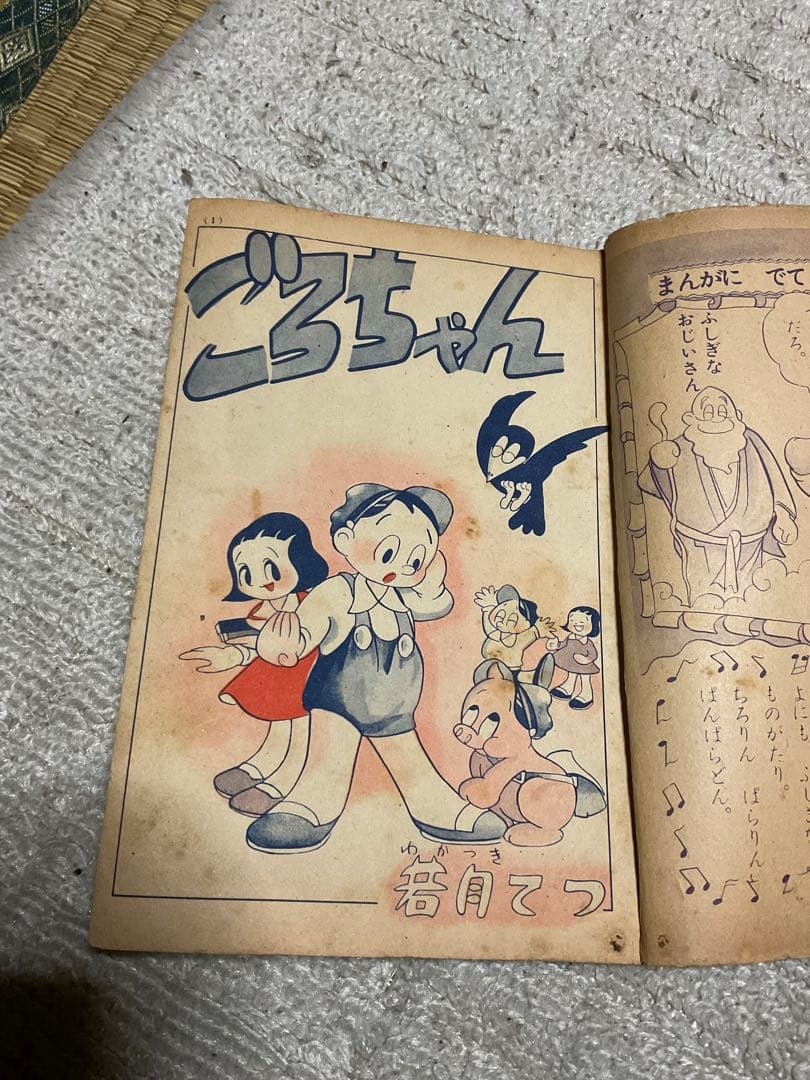 (1)
ごろちゃん
わかつき
若月てつ
まんがに でて
だろ。
ふしぎな
おじいさん
よにも
ものがたり。
ちろりん ぱらりん
ぱんぱらどん。